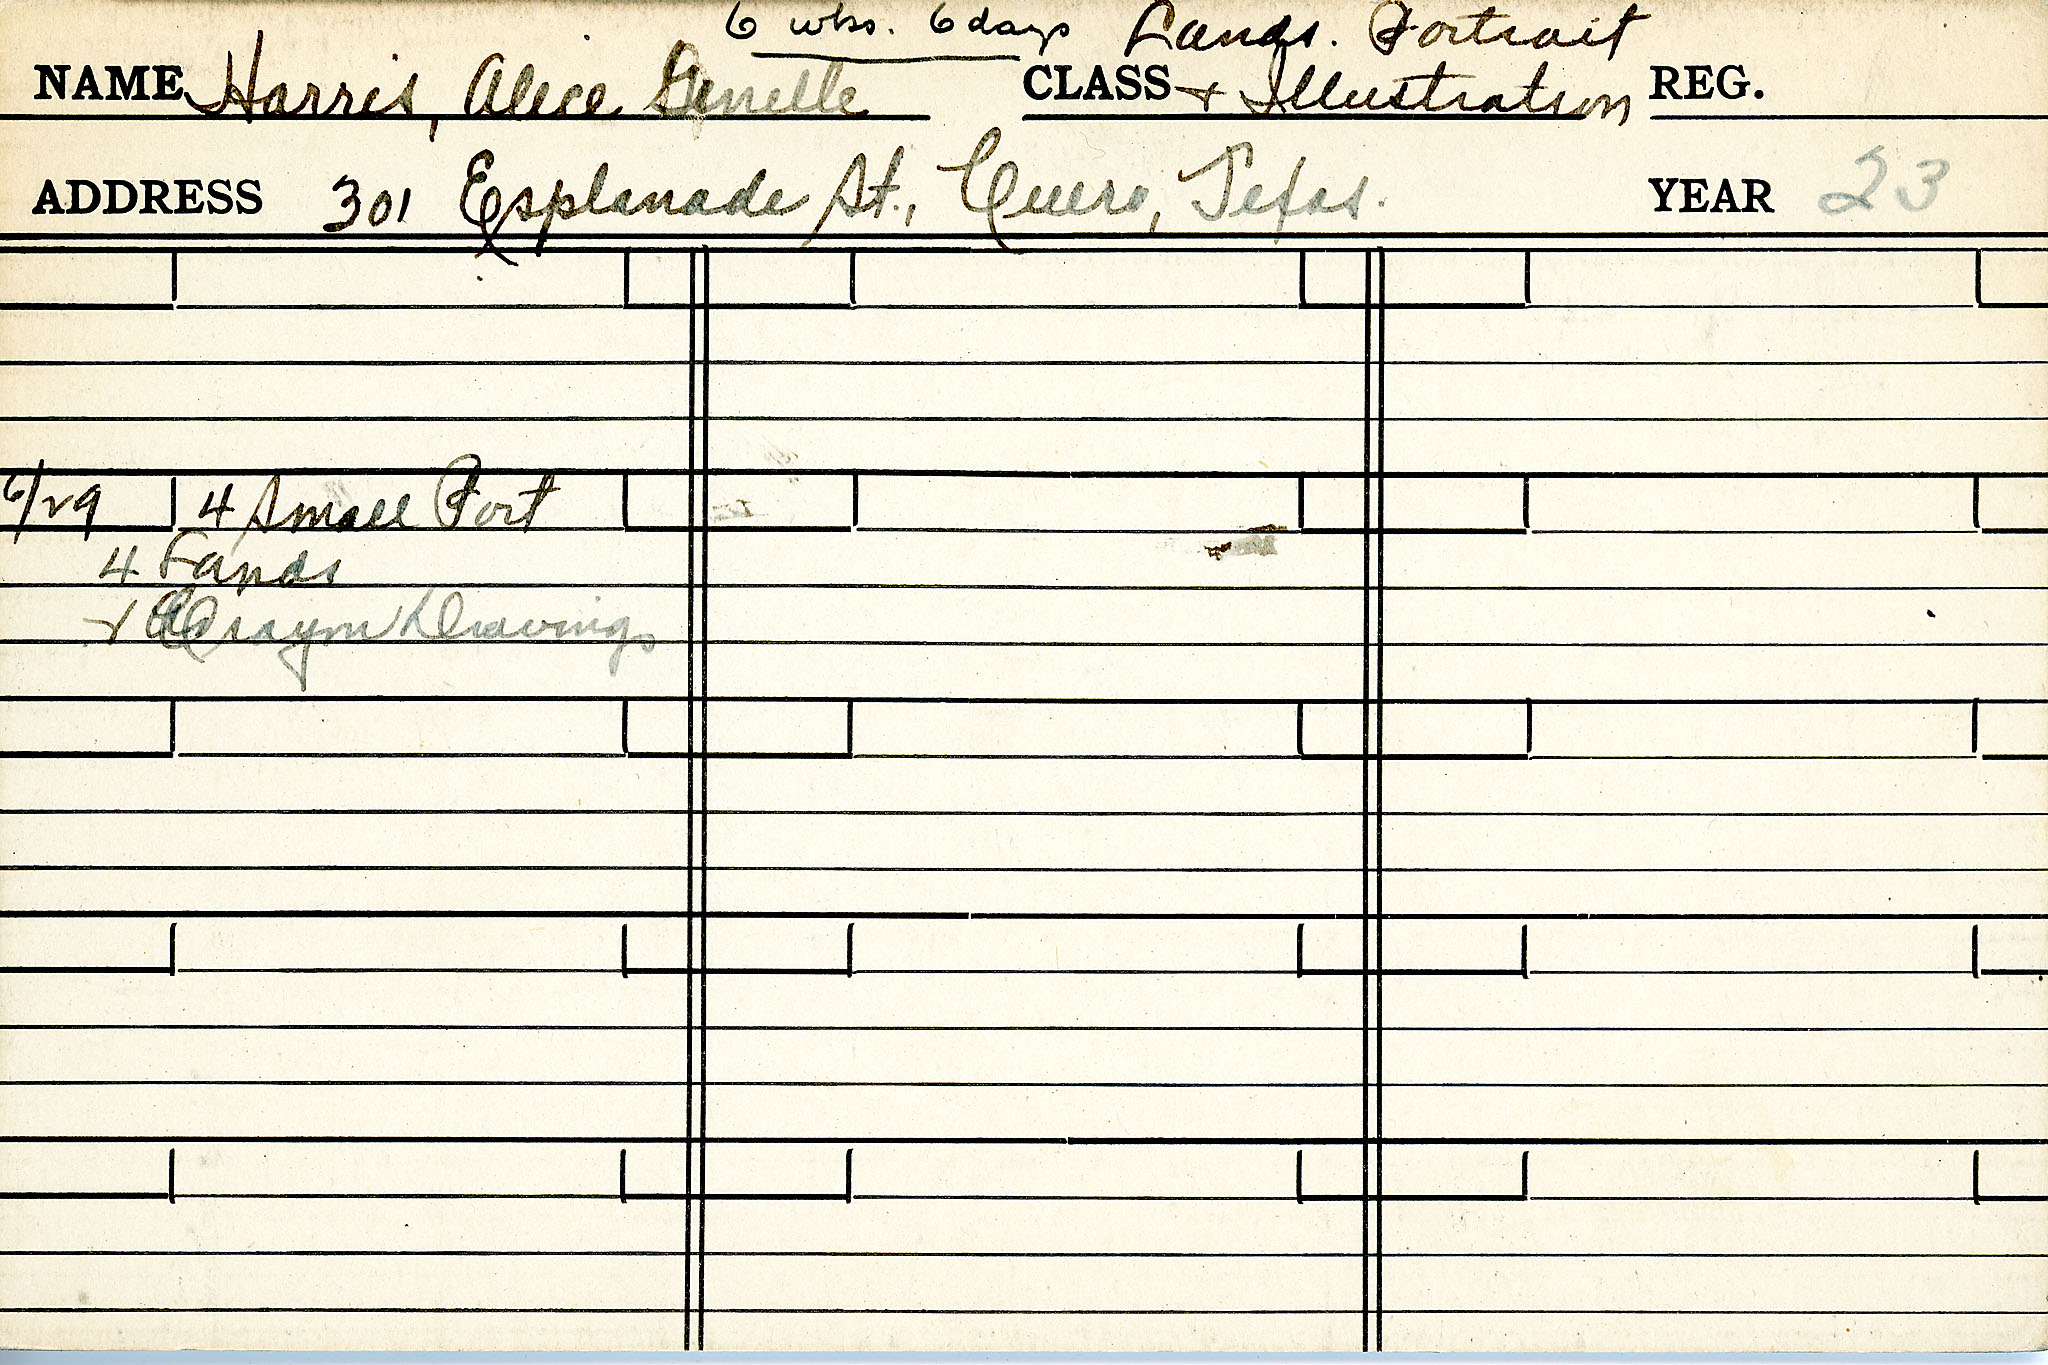 6 wks. 6 days Lands. Portrait
NAME Harris, Alice Genelle CLASS + Illustration REG.
ADDRESS 301 Esplanade St., Cuero, Texas. YEAR 23
6/29 4 Small Port
4 Lands
+ Crayon Drawings